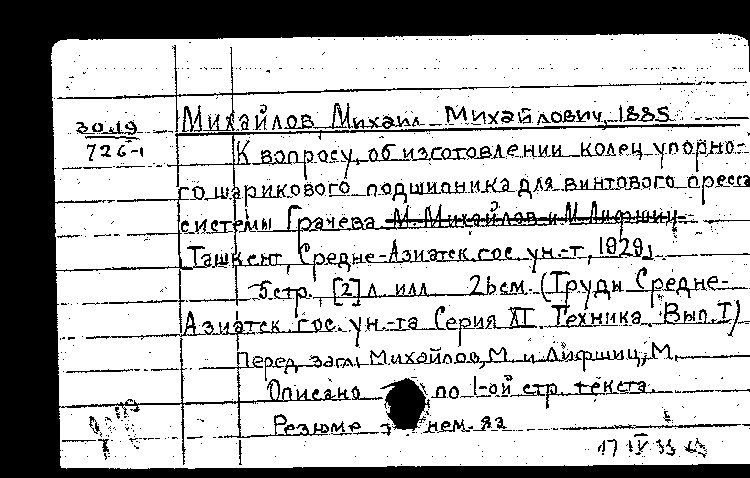 30.19
726-1
Михайлов, Михаил Михайлович, 1885
К вопросу, об изготовлении колец упорно-
го шарикового подшипника для винтового пресса
системы Грачева М. Михайлов и М. Лифшиц.
[Ташкент, Средне-Азиатск. гос. ун.-т, 1929]
5 стр., [2] л. илл. 26 см. (Труды Средне-
Азиатск. гос. ун.-та Серия XI Техника. Вып. I)
Перед загл. Михайлов, М. и Лифшиц, М.
Описано по 1-ой стр. текста.
Резюме нем. яз
17 IV 33